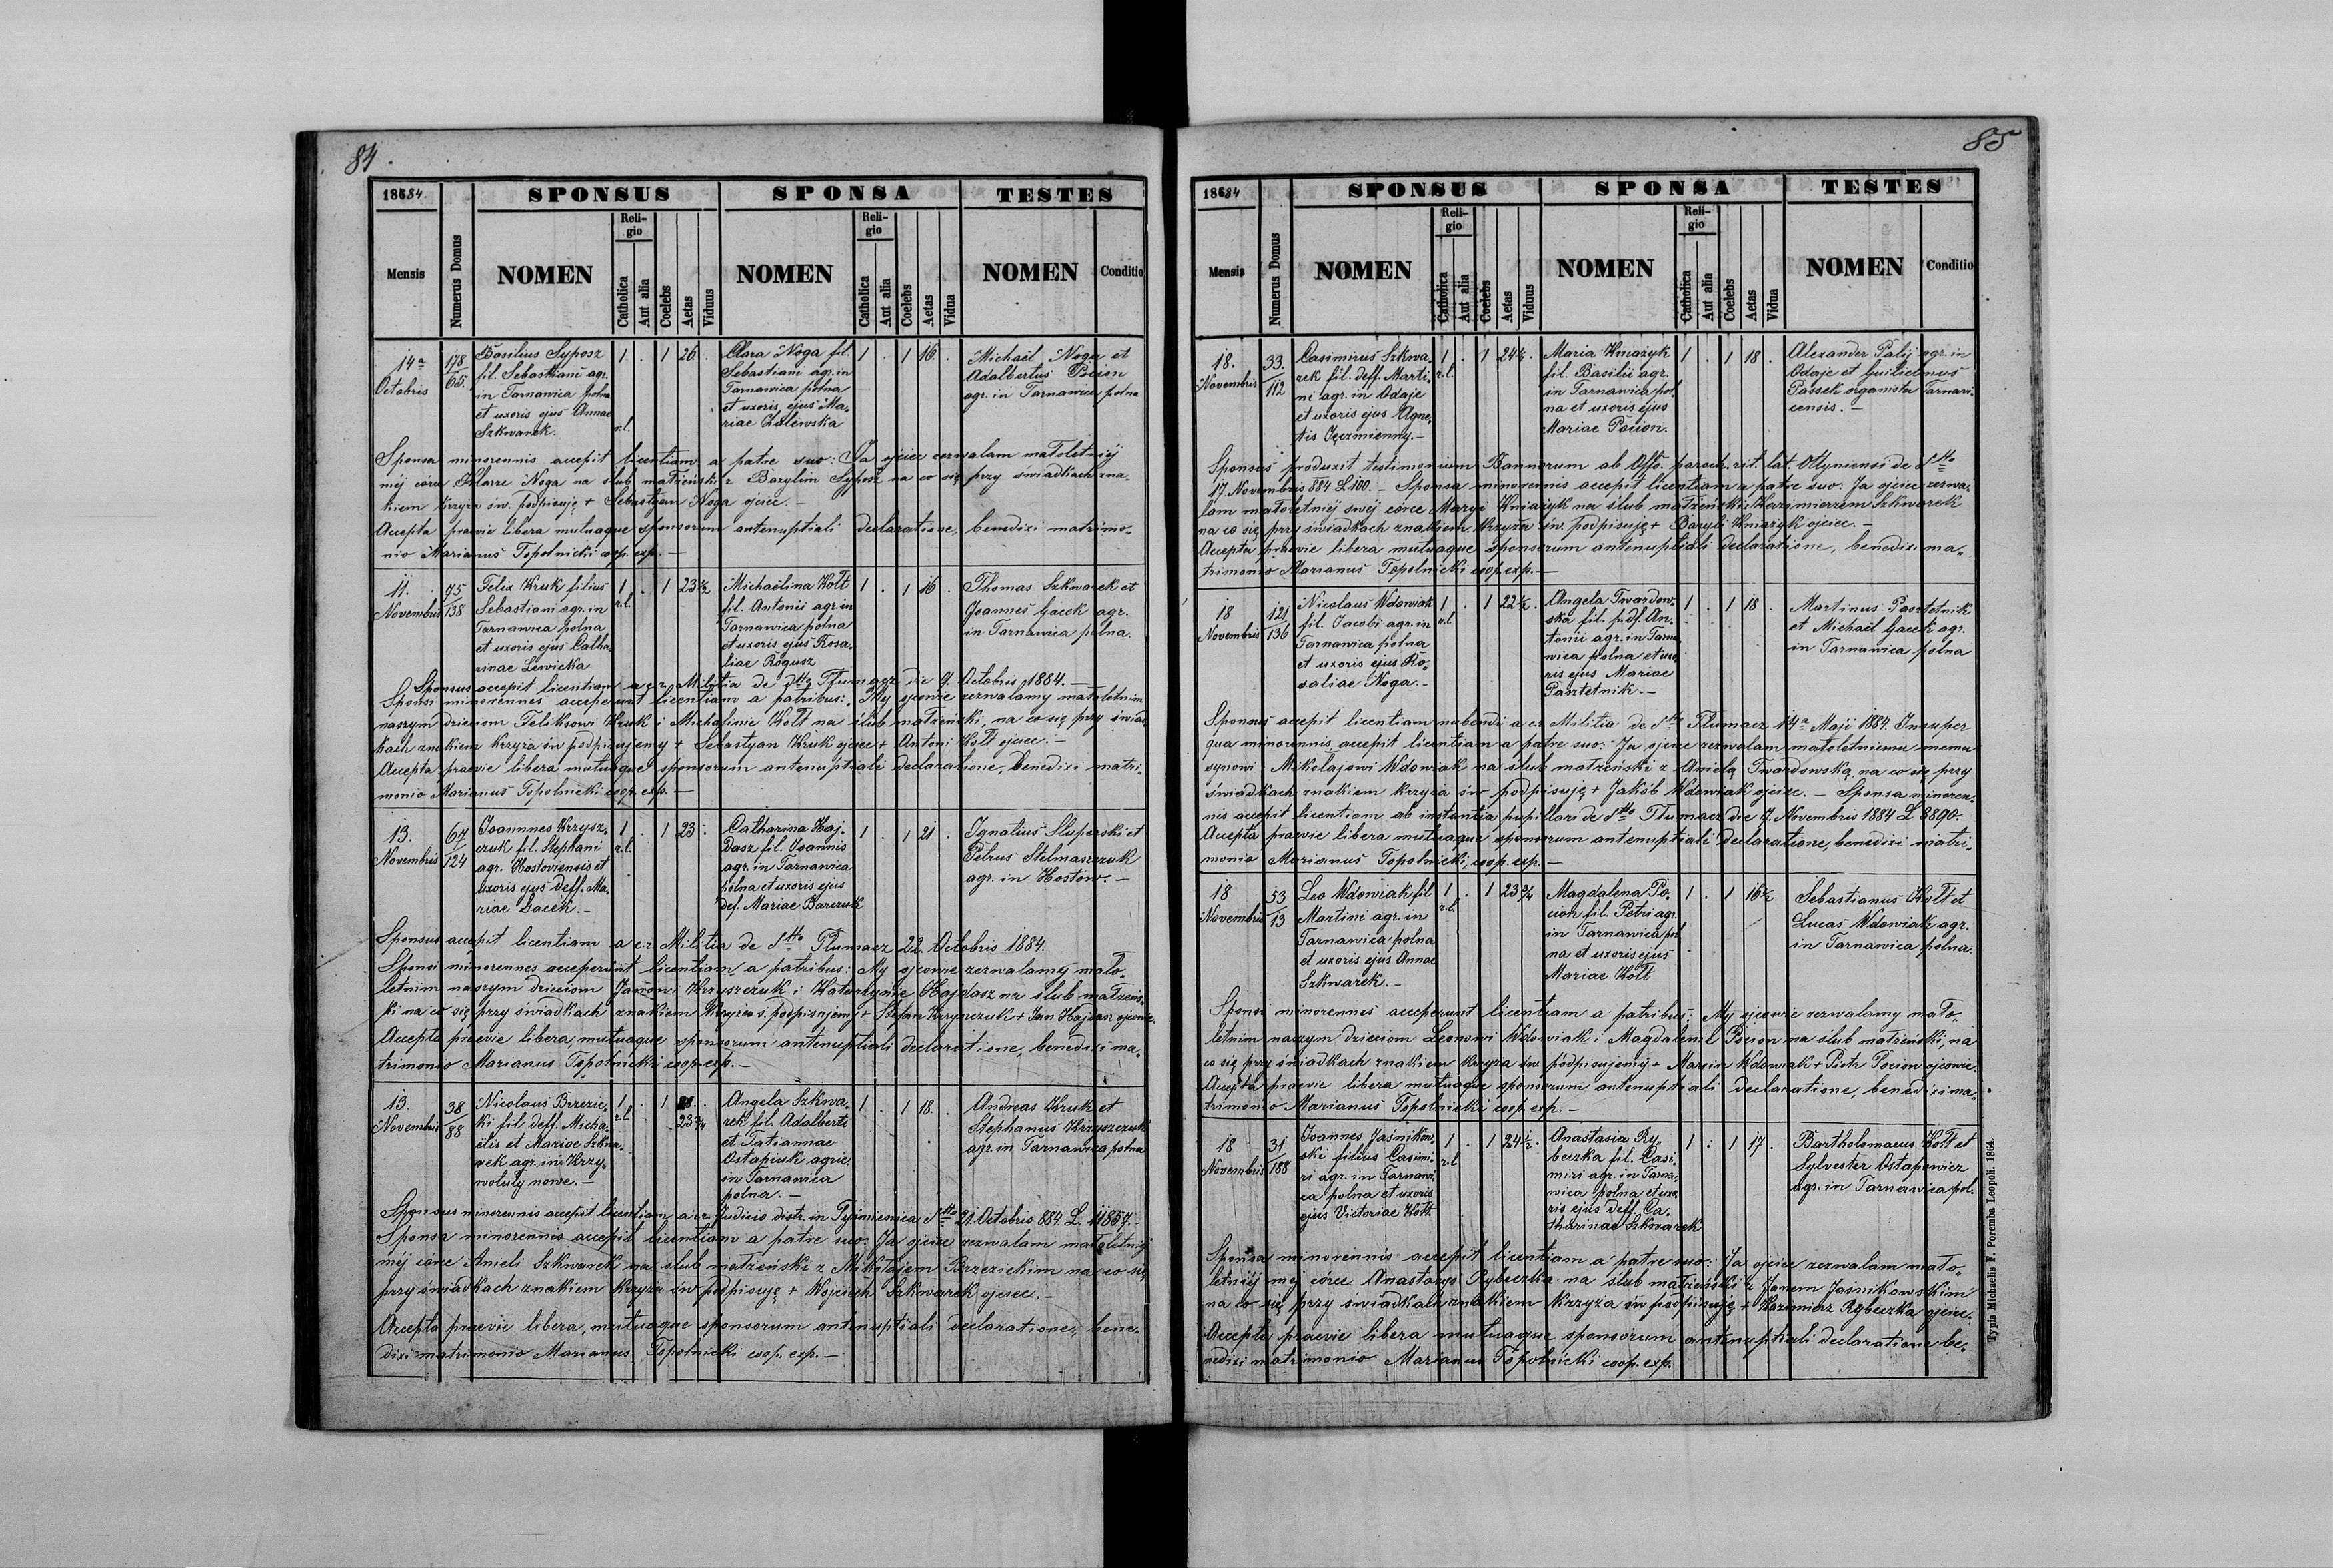 84.
1884.
SPONSUS
SPONSA
TESTES
Mensis
Numerus Domus
NOMEN
Religio
Catholica
Aut alia
Coelebs
Aetas
Viduus
NOMEN
Religio
Catholica
Aut alia
Coelebs
Aetas
Vidua
NOMEN
Conditio
14a
Octobris
178
65.
Basilius Syposz
fil. Sebastiani agr.
in Tarnawica polna
et uxoris ejus Annae
Szkwarek.
1
r.l.
.
1
26
.
Clara Noga fil.
Sebastiani agr. in
Tarnawica polna
et uxoris ejus Ma-
riae Zalewska
1
.
1
16
.
Michaël Noga et
Adalbertus Pocion
agr. in Tarnawica polna
Sponsa minorennis accepit licentiam a patre suo: Ja ojciec zezwalam małoletniéj
méj córce Klarze Noga na ślub małżeński z Bazylim Syposz na co się przy świadkach zna-
kiem krzyża św. podpisuję + Sebastyan Noga ojciec. –
Accepta praevie libera mutuaque sponsorum antenuptiali declaratione, benedixi matrimo-
nio Marianus Topolnicki coop. exp. –
11.
Novembris
75
138
Felix Kruk filius
Sebastiani agr. in
Tarnawica polna
et uxoris ejus Catha-
rinae Lewicka
1
r.l.
.
1
23½
Michaëlina Kołt
fil. Antonii agr. in
Tarnawica polna
et uxoris ejus Rosa-
liae Rogusz
1
.
1
16
.
Thomas Szkwarek et
Joannes Gacek agr.
in Tarnawica polna.
Sponsus accepit licentiam a c.r. Militia de dtto Tłumacz die 9. Octobris 1884. –
Sponsi minorennes acceperunt licentiam a patribus: My ojcowie zezwalamy małoletnim
naszym dzieciom Feliksowi Kruk i Michalinie Kołt na ślub małżeński, na co się przy świad-
kach znakiem krzyża św podpisujemy + Sebastyan Kruk ojciec + Antoni Kołt ojciec. –
Accepta praevie libera mutuaque sponsorum antenuptiali declaratione, benedixi matri-
monio Marianus Topolnicki coop. exp. –
13.
Novembris
67
124
Joannnes Krzysz-
czuk fil. Stephani
agr. Hostoviensis et
uxoris ejus deff. Ma-
riae Gacek. –
1
r.l.
.
1
23
.
Catharina Haj-
dasz fil. Joannis
agr. in Tarnawica
polna et uxoris ejus
def. Mariae Barczuk
1
.
1
21
.
Ignatius Słuperski et
Petrus Stelmaszczuk
agr. in Hostow. –
Sponsus accepit licentiam a c.r. Militia de dtto Tłumacz 22. Octobris 1884.
Sponsi minorennes acceperunt licentiam a patribus: My ojcowie zezwalamy mało-
letnim naszym dzieciom Janowi Krzyszczuk i Katarzynie Hajdasz na ślub małżeńs-
ki na co się przy świadkach znakiem Krzyża ś. podpisujemy + Stefan Krzyszczuk + Jan Hajdasz ojcowie.
Accepta praevie libera, mutuaque sponsorum antenuptiali declaratione, benedixi ma-
trimonio Marianus Topolnicki coop. exp. –
13.
Novembris
38
88
Nicolaus Brzezic-
ki fil deff. Micha-
ëlis et Mariae Szkwa-
rek agr. in Krzy-
wotuly nowe. –
1
r.l.
.
1
23¾
.
Angela Szkwa-
rek fil. Adalberti
et Tatiannae
Ostapiuk agric.
in Tarnawica
polna. –
1
.
1
18.
.
Andreas Kruk et
Stephanus Krzyszczuk
agr. in Tarnawica polna
Sponsus minorennis accepit licentiam a c.r. Judicio distr. in Tyśmienica dtto 21. Octobris 884. L. 11857. –
Sponsa minorennis accepit licentiam a patre suo: Ja ojciec zezwalam małoletniéj
méj córce Anieli Szkwarek na ślub małżeński z Mikołajem Brzezickim na co się
przy świadkach znakiem krzyża św podpisuję + Wojciech Szkwarek ojciec. –
Accepta praevie libera, mutuaque sponsorum antenuptiali declaratione, bene-
dixi matrimonio Marianus Topolnicki coop. exp. –
85
1884
SPONSUS
SPONSA
TESTES
Mensis
Numerus Domus
NOMEN
Religio
Catholica
Aut alia
Coelebs
Aetas
Viduus
NOMEN
Religio
Catholica
Aut alia
Coelebs
Aetas
Vidua
NOMEN
Conditio
18.
Novembris
33.
112
Casimirus Szkwa-
rek fil. deff. Marti-
ni agr. in Odaje
et uxoris ejus Agne-
tis Jęczmienny. –
1
r.l.
.
1
24½
.
Maria Kniażyk
fil. Basilii agr.
in Tarnawica pol-
na et uxoris ejus
Mariae Pocion.
1
.
1
18
.
Alexander Palij agr. in
Odaje et Guilielmus
Passek organista Tarnawi-
censis. –
Sponsus produxit testimonium Bannorum ab Offo. paroch. rit. lat. Ottyniensi de dtto
17. Novembris 884 L. 100. – Sponsa minorennis accepit licentiam a patre suo: Ja ojciec zezwa-
lam małoletniéj swéj córce Maryi Kniażyk na ślub małżeński z Kazimierzem Szkwarek
na co się przy świadkach znakiem krzyża św. podpisuję + Bazyli Kniażyk ojciec. –
Accepta praevie libera mutuaque sponsorum antenuptiali declaratione, benedixi ma-
trimonio Marianus Topolnicki coop. exp. –
18
Novembris
121
136
Nicolaus Wdowiak
fil. Jacobi agr. in
Tarnawica polna
et uxoris ejus Ro-
saliae Noga. –
1
r.l
.
1
22½
.
Angela Twardow-
ska fil. p.df. An-
tonii agr. in Tarna-
wica polna et uxo-
ris ejus Mariae
Pasztetnik. –
1
.
1
18
.
Martinus Pasztetnik
et Michaël Gacek agr.
in Tarnawica polna
Sponsus accepit licentiam nubendi a c.r. Militia de dtto Tłumacz 14a Maji 1884. Insuper
qua minorennis accepit licentiam a patre suo: Ja ojciec zezwalam małoletniemu memu
synowi Mikołajowi Wdowiak na ślub małżeński z Anielą Twardowską, na co się przy
świadkach znakiem krzyża św podpisuję + Jakób Wdowiak ojciec. – Sponsa minoren-
nis accepit licentiam ab instantia pupillari de dtto Tłumacz die 7. Novembris 1884 L 8890.
Accepta praevie libera mutuaque sponsorum antenuptiali declaratione, benedixi matri-
monio Marianus Topolnicki, coop. exp. –
18
Novembris
53
13
Leo Wdowiak fil
Martini agr. in
Tarnawica polna
et uxoris ejus Annae
Szkwarek. –
1
r.l.
.
1
23¾
Magdalena Po-
cion fil. Petri agr.
in Tarnawica pol
na et uxoris ejus
Mariae Kołt
1
.
1
16½
Sebastianus Kołt et
Lucas Wdowiak agr.
in Tarnawica polna.
Sponsi minorennes acceperunt licentiam a patribus: My ojcowie zezwalamy mało-
letnim naszym dzieciom Leonowi Wdowiak i Magdalenie Pocion na ślub małżeński, na
co się przy świadkach znakiem krzyża św podpisujemy + Marcin Wdowiak + Piotr Pocion ojcowie.
Accepta praevie libera mutuaque sponsorum antenuptiali declaratione, benedixi ma-
trimonio Marianus Topolnicki coop. exp. –
18
Novembris
31
188
Joannes Jaśnikow-
ski filius Casimi-
ri agr. in Tarnawi-
ca polna et uxoris
ejus Victoriae Kołt.
1
r.l
.
1
24½
.
Anastasia Ry-
beczka fil. Casi-
miri agr. in Tarna-
wica polna et uxo-
ris ejus deff. Ca-
tharinae Szkwarek
1
.
1
17
.
Bartholomaeus Kołt et
Sylvester Ostapowicz
agr. in Tarnawica pol.
Sponsa minorennis accepit licentiam a patre suo: Ja ojciec zezwalam mało-
letniéj mej córce Anastazyi Rybeczka na ślub małżeński z Janem Jaśnikowskim
na co się przy świadkach znakiem krzyża św podpisuję + Kazimierz Rybeczka ojciec.
Accepta praevie libera mutuaque sponsorum antenuptiali declaratione be-
nedixi matrimonio Marianus Topolnicki coop. exp.
Typis Michaelis F. Poremba Leopoli. 1864.